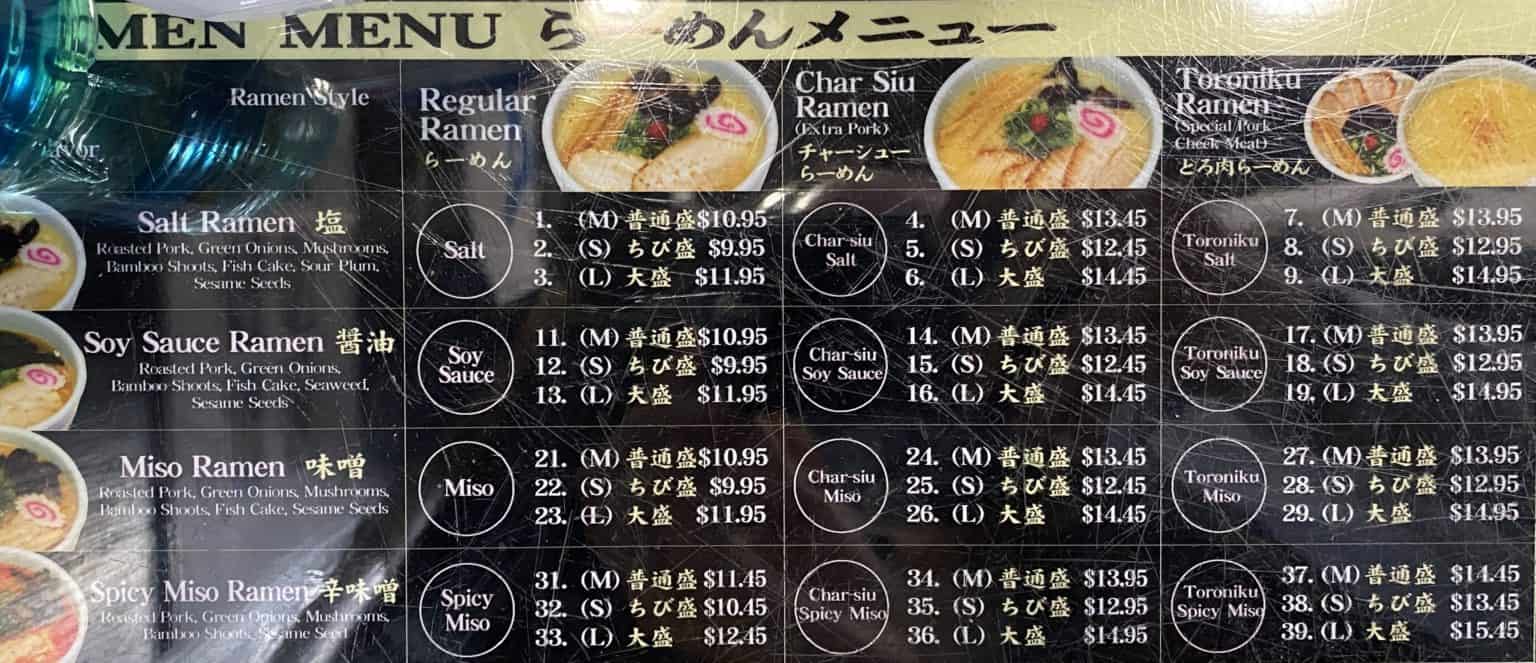 MEN MENU らーめんメニュー
Ramen Style
Regular
Ramen
らーめん
Char Siu
Ramen
(Extra Pork)
チャーシュー
らーめん
Toroniku
Ramen
(Special Pork
Cheek Meat)
とろ肉らーめん
Salt Ramen 塩
Roasted Pork, Green Onions, Mushrooms,
Bamboo Shoots, Fish Cake, Sour Plum,
Sesame Seeds
Salt
1. (M) 普通盛 $10.95
2. (S) ちび盛 $9.95
3. (L) 大盛 $11.95
Char-siu
Salt
4. (M) 普通盛 $13.45
5. (S) ちび盛 $12.45
6. (L) 大盛 $14.45
Toroniku
Salt
7. (M) 普通盛 $13.95
8. (S) ちび盛 $12.95
9. (L) 大盛 $14.95
Soy Sauce Ramen 醤油
Roasted Pork, Green Onions,
Bamboo Shoots, Fish Cake, Seaweed,
Sesame Seeds
Soy
Sauce
11. (M) 普通盛 $10.95
12. (S) ちび盛 $9.95
13. (L) 大盛 $11.95
Char-siu
Soy Sauce
14. (M) 普通盛 $13.45
15. (S) ちび盛 $12.45
16. (L) 大盛 $14.45
Toroniku
Soy Sauce
17. (M) 普通盛 $13.95
18. (S) ちび盛 $12.95
19. (L) 大盛 $14.95
Miso Ramen 味噌
Roasted Pork, Green Onions, Mushrooms,
Bamboo Shoots, Fish Cake, Sesame Seeds
Miso
21. (M) 普通盛 $10.95
22. (S) ちび盛 $9.95
23. (L) 大盛 $11.95
Char-siu
Miso
24. (M) 普通盛 $13.45
25. (S) ちび盛 $12.45
26. (L) 大盛 $14.45
Toroniku
Miso
27. (M) 普通盛 $13.95
28. (S) ちび盛 $12.95
29. (L) 大盛 $14.95
Spicy Miso Ramen 辛味噌
Roasted Pork, Green Onions, Mushrooms,
Bamboo Shoots, Sesame Seed
Spicy
Miso
31. (M) 普通盛 $11.45
32. (S) ちび盛 $10.45
33. (L) 大盛 $12.45
Char-siu
Spicy Miso
34. (M) 普通盛 $13.95
35. (S) ちび盛 $12.95
36. (L) 大盛 $14.95
Toroniku
Spicy Miso
37. (M) 普通盛 $14.45
38. (S) ちび盛 $13.45
39. (L) 大盛 $15.45